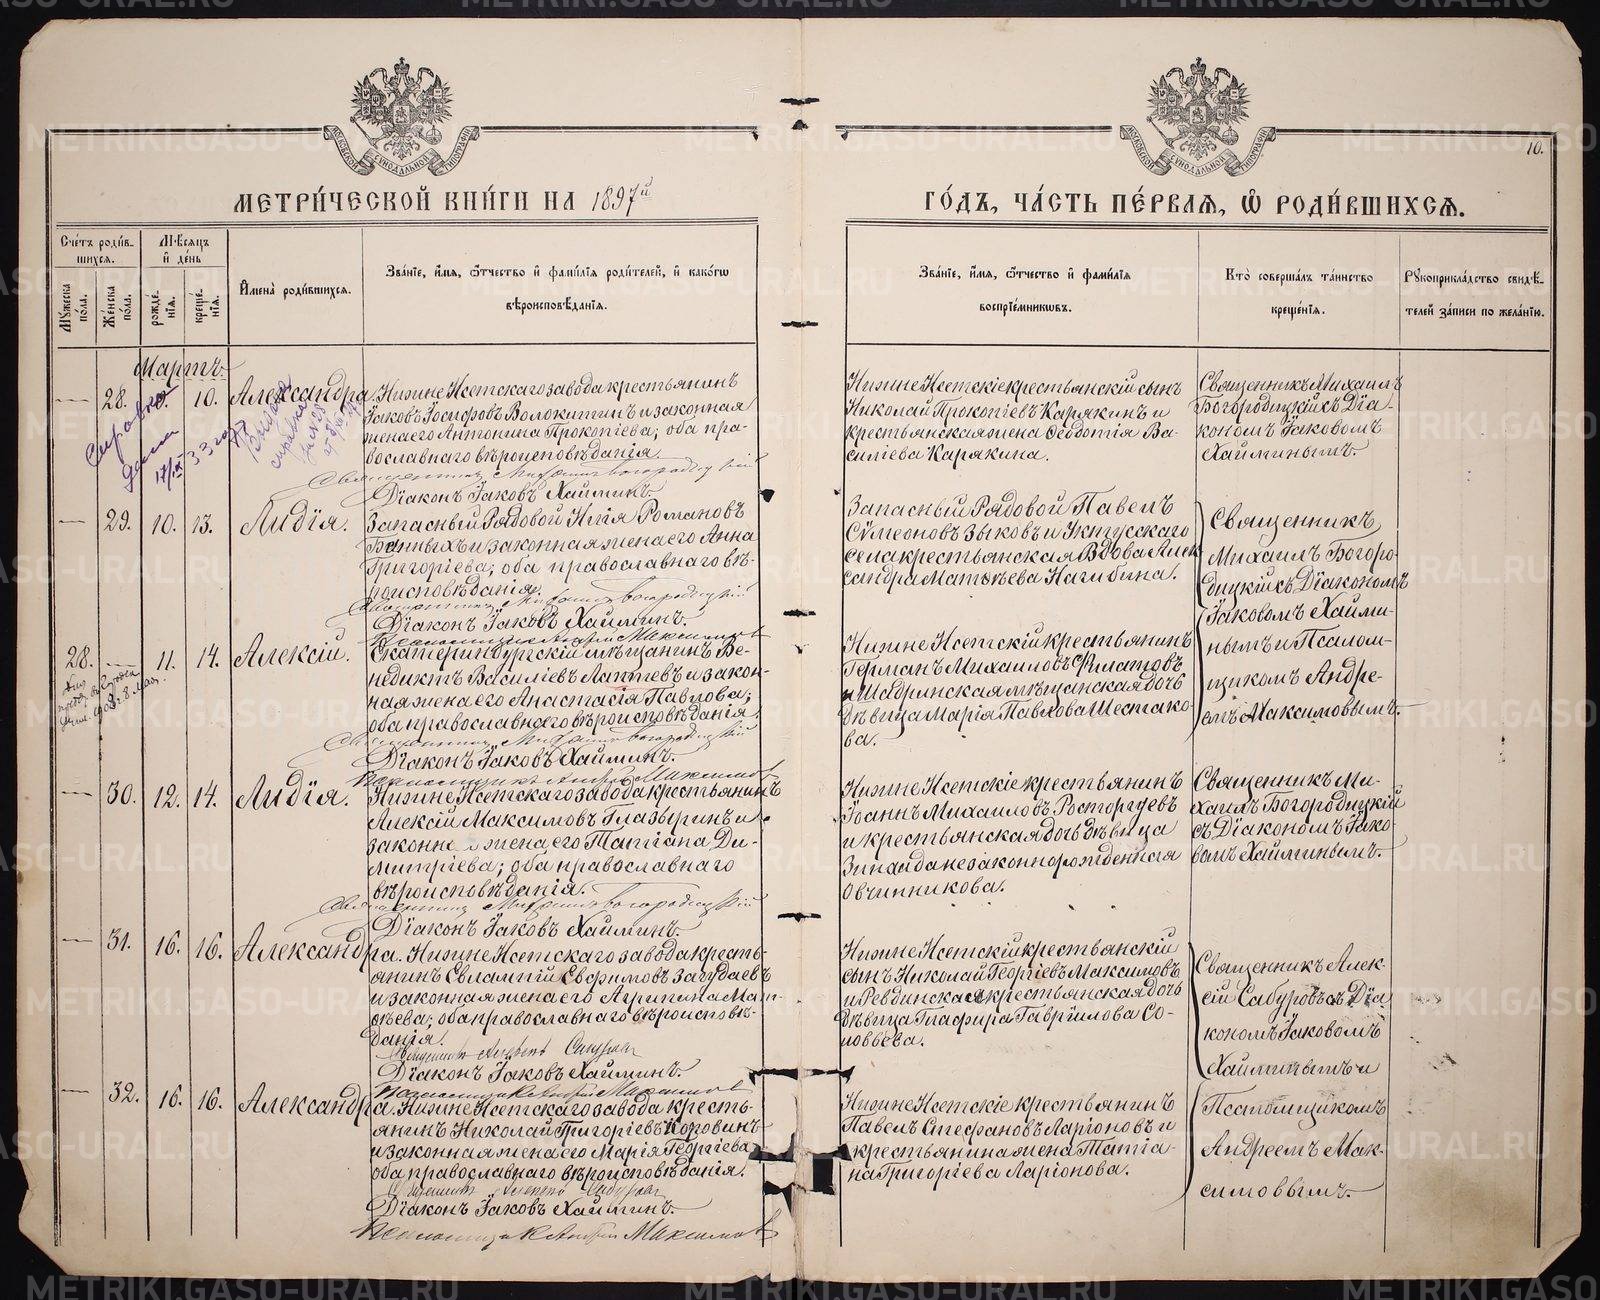 МЕТРИ́ЧЕСКОЙ КНИ́ГИ НА 1897й
ГО́ДЪ, ЧА́СТЬ ПЕ́РВАѦ, Ѡ҆ РОДИ́ВШИХСѦ.
10.
Сче́тъ роди́в-
шихсѧ.
Мꙋ́жеска по́ла.
Же́нска по́ла.
Мѣ́сѧцъ и҆ де́нь
рожде́-нїѧ.
креще́-нїѧ.
И҆мена̀ роди́вшихсѧ.
Зва́нїе, и҆́мѧ, ѻ҆́тчество и҆ фами́лїѧ роди́телей, и҆ како́гѡ
вѣроисповѣ́данїѧ.
Зва́нїе, и҆́мѧ, ѻ҆́тчество и҆ фами́лїѧ
воспрїе́мникѡвъ.
Кто̀ соверша́лъ та́инство
креще́нїѧ.
Рꙋкоприкла́дство свидѣ́-
телей за́писи по жела́нїю.
Мартъ.
— 28. 10. Александра
Нижне Исетскаго завода крестьянинъ
Іаковъ Іосифовъ Волокитинъ и законная
жена его Антонина Прокопіева; оба пра-
вославнаго вѣроисповѣданія.
Священникъ Михаилъ Богородицкій
Діаконъ Іаковъ Хайминъ.
Нижне Исетскіе крестьянскій сынъ
Николай Прокопіевъ Карякинъ и
крестьянская жена Феодотія Ва-
силіева Карякина.
Священникъ Михаилъ
Богородицкій съ Діа-
кономъ Іаковомъ
Хайминымъ.
Справка
дана
17/IX 33 года
— 29. 10. 13. Лидія.
Запасный Рядовой Илія Романовъ
Банныхъ и законная жена его Анна
Григоріева; оба православнаго вѣ-
роисповѣданія.
Священникъ Михаилъ Богородицкій
Діаконъ Іаковъ Хайминъ.
Псаломщикъ Андрей Максимовъ
Запасный Рядовой Павелъ
Сѵмеоновъ Зыковъ и Уктусскаго
села крестьянская Вдова Алек
сандра Матѳѣева Нагибина.
Священникъ
Михаилъ Богоро-
дицкій съ Діакономъ
Іаковомъ Хайми-
нымъ и Псалом-
щикомъ Андре-
емъ Максимовымъ.
28. — 11. 14. Алексій.
Екатеринбургскій мѣщанинъ Ве-
недиктъ Василіевъ Лаптевъ и закон-
ная жена его Анастасія Павлова;
оба православнаго вѣроисповѣданія.
Священникъ Михаилъ Богородицкій
Діаконъ Іаковъ Хайминъ.
Псаломщикъ Андрей Максимовъ
Нижне Исетскій крестьянинъ
Германъ Михаиловъ Филатовъ
и Шадринская мѣщанская дочь
дѣвица Марія Павлова Шестако-
ва.
— 30. 12. 14. Лидія.
Нижне Исетскаго завода крестьянинъ
Алексій Максимовъ Глазыринъ и
законная жена его Татіана Ди-
митріева; оба православнаго
вѣроисповѣданія.
Священникъ Михаилъ Богородицкій
Діаконъ Іаковъ Хайминъ.
Нижне Исетскіе крестьянинъ
Іоаннъ Михаиловъ Росторгуевъ
и крестьянская дочь дѣвица
Зинаида незаконнорожденная
Овчинникова.
Священникъ Ми-
хаилъ Богородицкій
съ Діакономъ Іако-
вомъ Хайминымъ.
— 31. 16. 16. Александра.
Нижне Исетскаго завода кресть-
янинъ Евлампій Евфимовъ Загудаевъ
и законная жена его Агрипина Мат-
ѳѣева; оба православнаго вѣроисповѣ-
данія.
Священникъ Алексій Сабуровъ
Діаконъ Іаковъ Хайминъ.
Псаломщикъ Андрей Максимовъ
Нижне Исетскій крестьянскій
сынъ Николай Георгіевъ Максимовъ
и Ревдинская крестьянская дочь
дѣвица Глафира Гавріилова Со-
ловьева.
Священникъ Алек-
сій Сабуровъ съ Діа
кономъ Іаковомъ
Хайминымъ и
Псаломщикомъ
Андреемъ Мак-
симовымъ.
— 32. 16. 16. Александра.
Нижне Исетскаго завода кресть-
янинъ Николай Григоріевъ Коровинъ
и законная жена его Марія Георгіева
оба православнаго вѣроисповѣданія.
Священникъ Алексій Сабуровъ
Діаконъ Іаковъ Хайминъ.
Псаломщикъ Андрей Максимовъ
Нижне Исетскіе крестьянинъ
Павелъ Стефановъ Ларіоновъ и
крестьянина жена Татіа-
на Григоріева Ларіонова.
METRIKI.GASO-URAL.RU